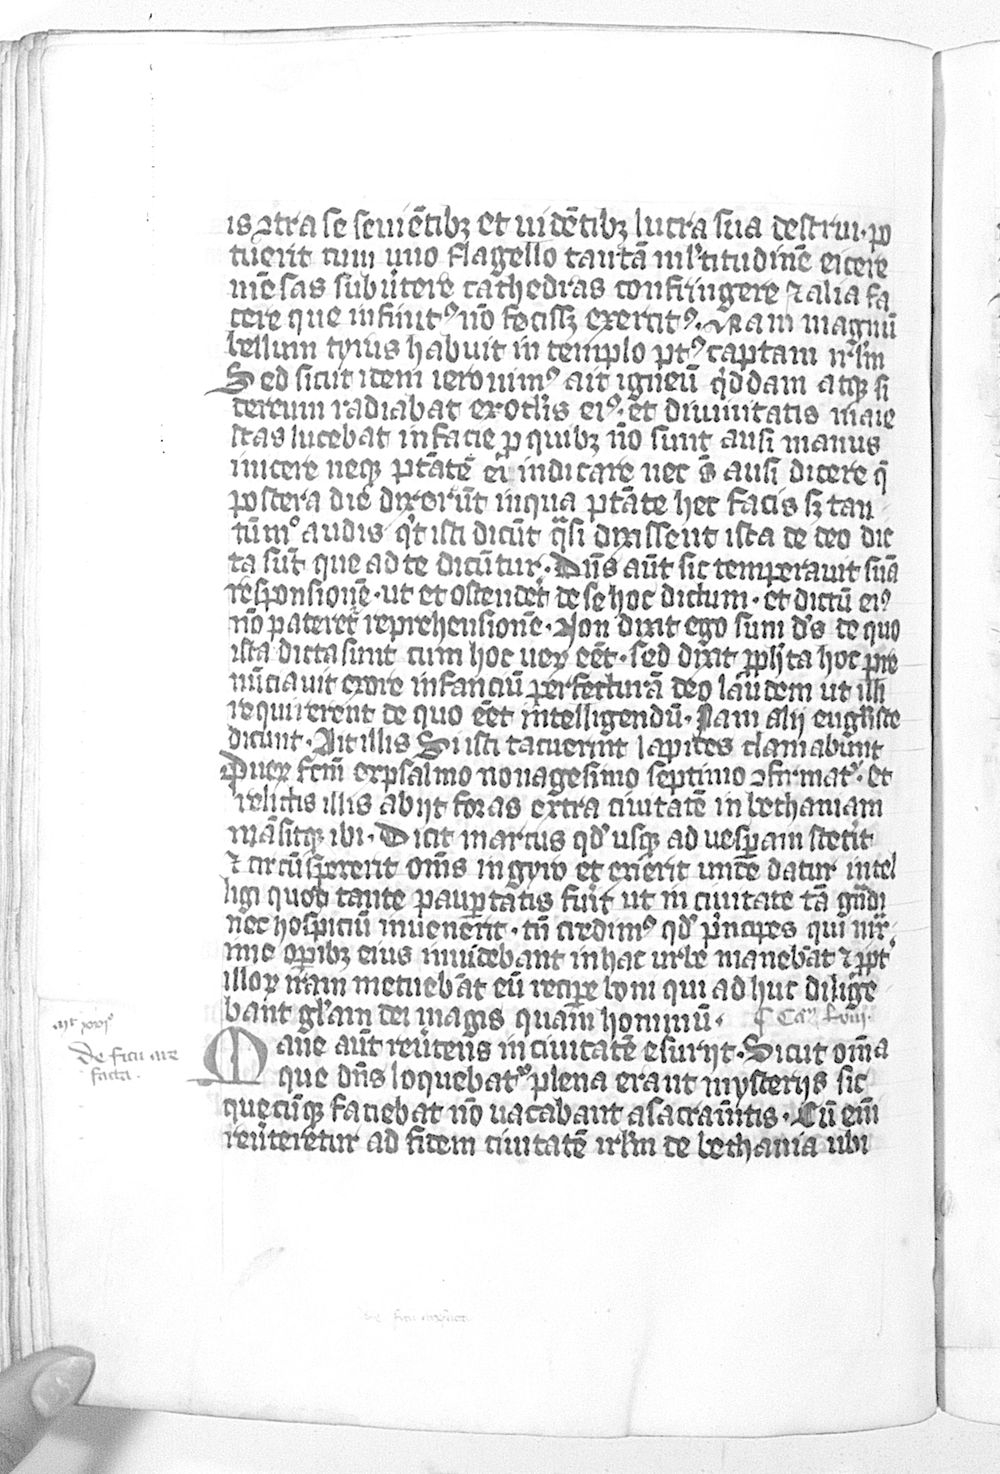 is ꝯtra se seuiētibꝫ et uidētibꝫ lucra sua destrui · po
tuerit cum uno flagello tantā ml'titudinē eicere
mēsas subūtere cathedras confringere ⁊ alia fa
cere que infinitꝰ nō fecissꝫ exercitꝰ · Nam magnū
bellum tytus habuit in templo ptꝰ captam irl'm
Sed sicut item ieronimꝰ ait igneū qͥddam atqꝫ si
tereum radiabat ex oclīs eiꝰ · et diuinitatis maie
stas lucebat in facie p quibꝫ nō sunt ausi manus
inicere neqꝫ ptātē ei indicare nec s̄ ausi dicere q̄
postera die dixerūt in qua ptāte hec facis sꝫ tan
tūmº audis qͥt isti dicūt qͣsi dixissent ista de deo dic
ta sūt que ad te dicūtur · Dn̄s aūt sic temperauit suā
responsionē · ut et ostendēt de se hoc dictum · et dictū eiꝰ
nō pateret reprehensionē · Non dixit ego sum d's de quo
ista dicta sunt cum hoc ueꝝ eēt · sed dixit ꝓph̄ta hoc pre
nūciauit ex ore infanciū perfecturā deo laudem ut illi
requirerent de quo eēt intelligendū · Nam alij eugl'iste
dicunt · Ait illis Si isti tacuerint lapides clamabunt
Pueꝝ fcm̄ ex psalmo nonagesimo septimo ꝯfirmatᷣ · et
relictis illis abijt foras extra ciuitatē in bethaniam
māsitqꝫ ibi · Dicit marcus qd' usqꝫ ad uesꝑam stetit
⁊ circūspexerit oms̄ in gyro et exierit unde datur intel
ligi quod tante pauꝑtatis fuit ut in ciuitate tā gn̄di
nec hospiciū inuenerit · tn̄ credimꝰ qd' pncipes qui nīr
mie oꝑibꝫ eius inuidebant in hac urbe manebāt ⁊ ꝓpt'
illoꝝ iram metuebāt eū reciꝑe boni qui ad huc dilige
bant gl'am dei magis quam hominū · ¶ Caꝫ Lviij ·
Mane aūt reūtens in ciuitatē esurijt · Sicut om̄a
que dn̄s loquebatᷣ plena erant mysterijs sic
quecūqꝫ faciebat nō uacabant a sacramtis · Cū em̄
reūteretur ad fidem ciuitatē irl'm de bethania ubi
De ficu are
facta ·